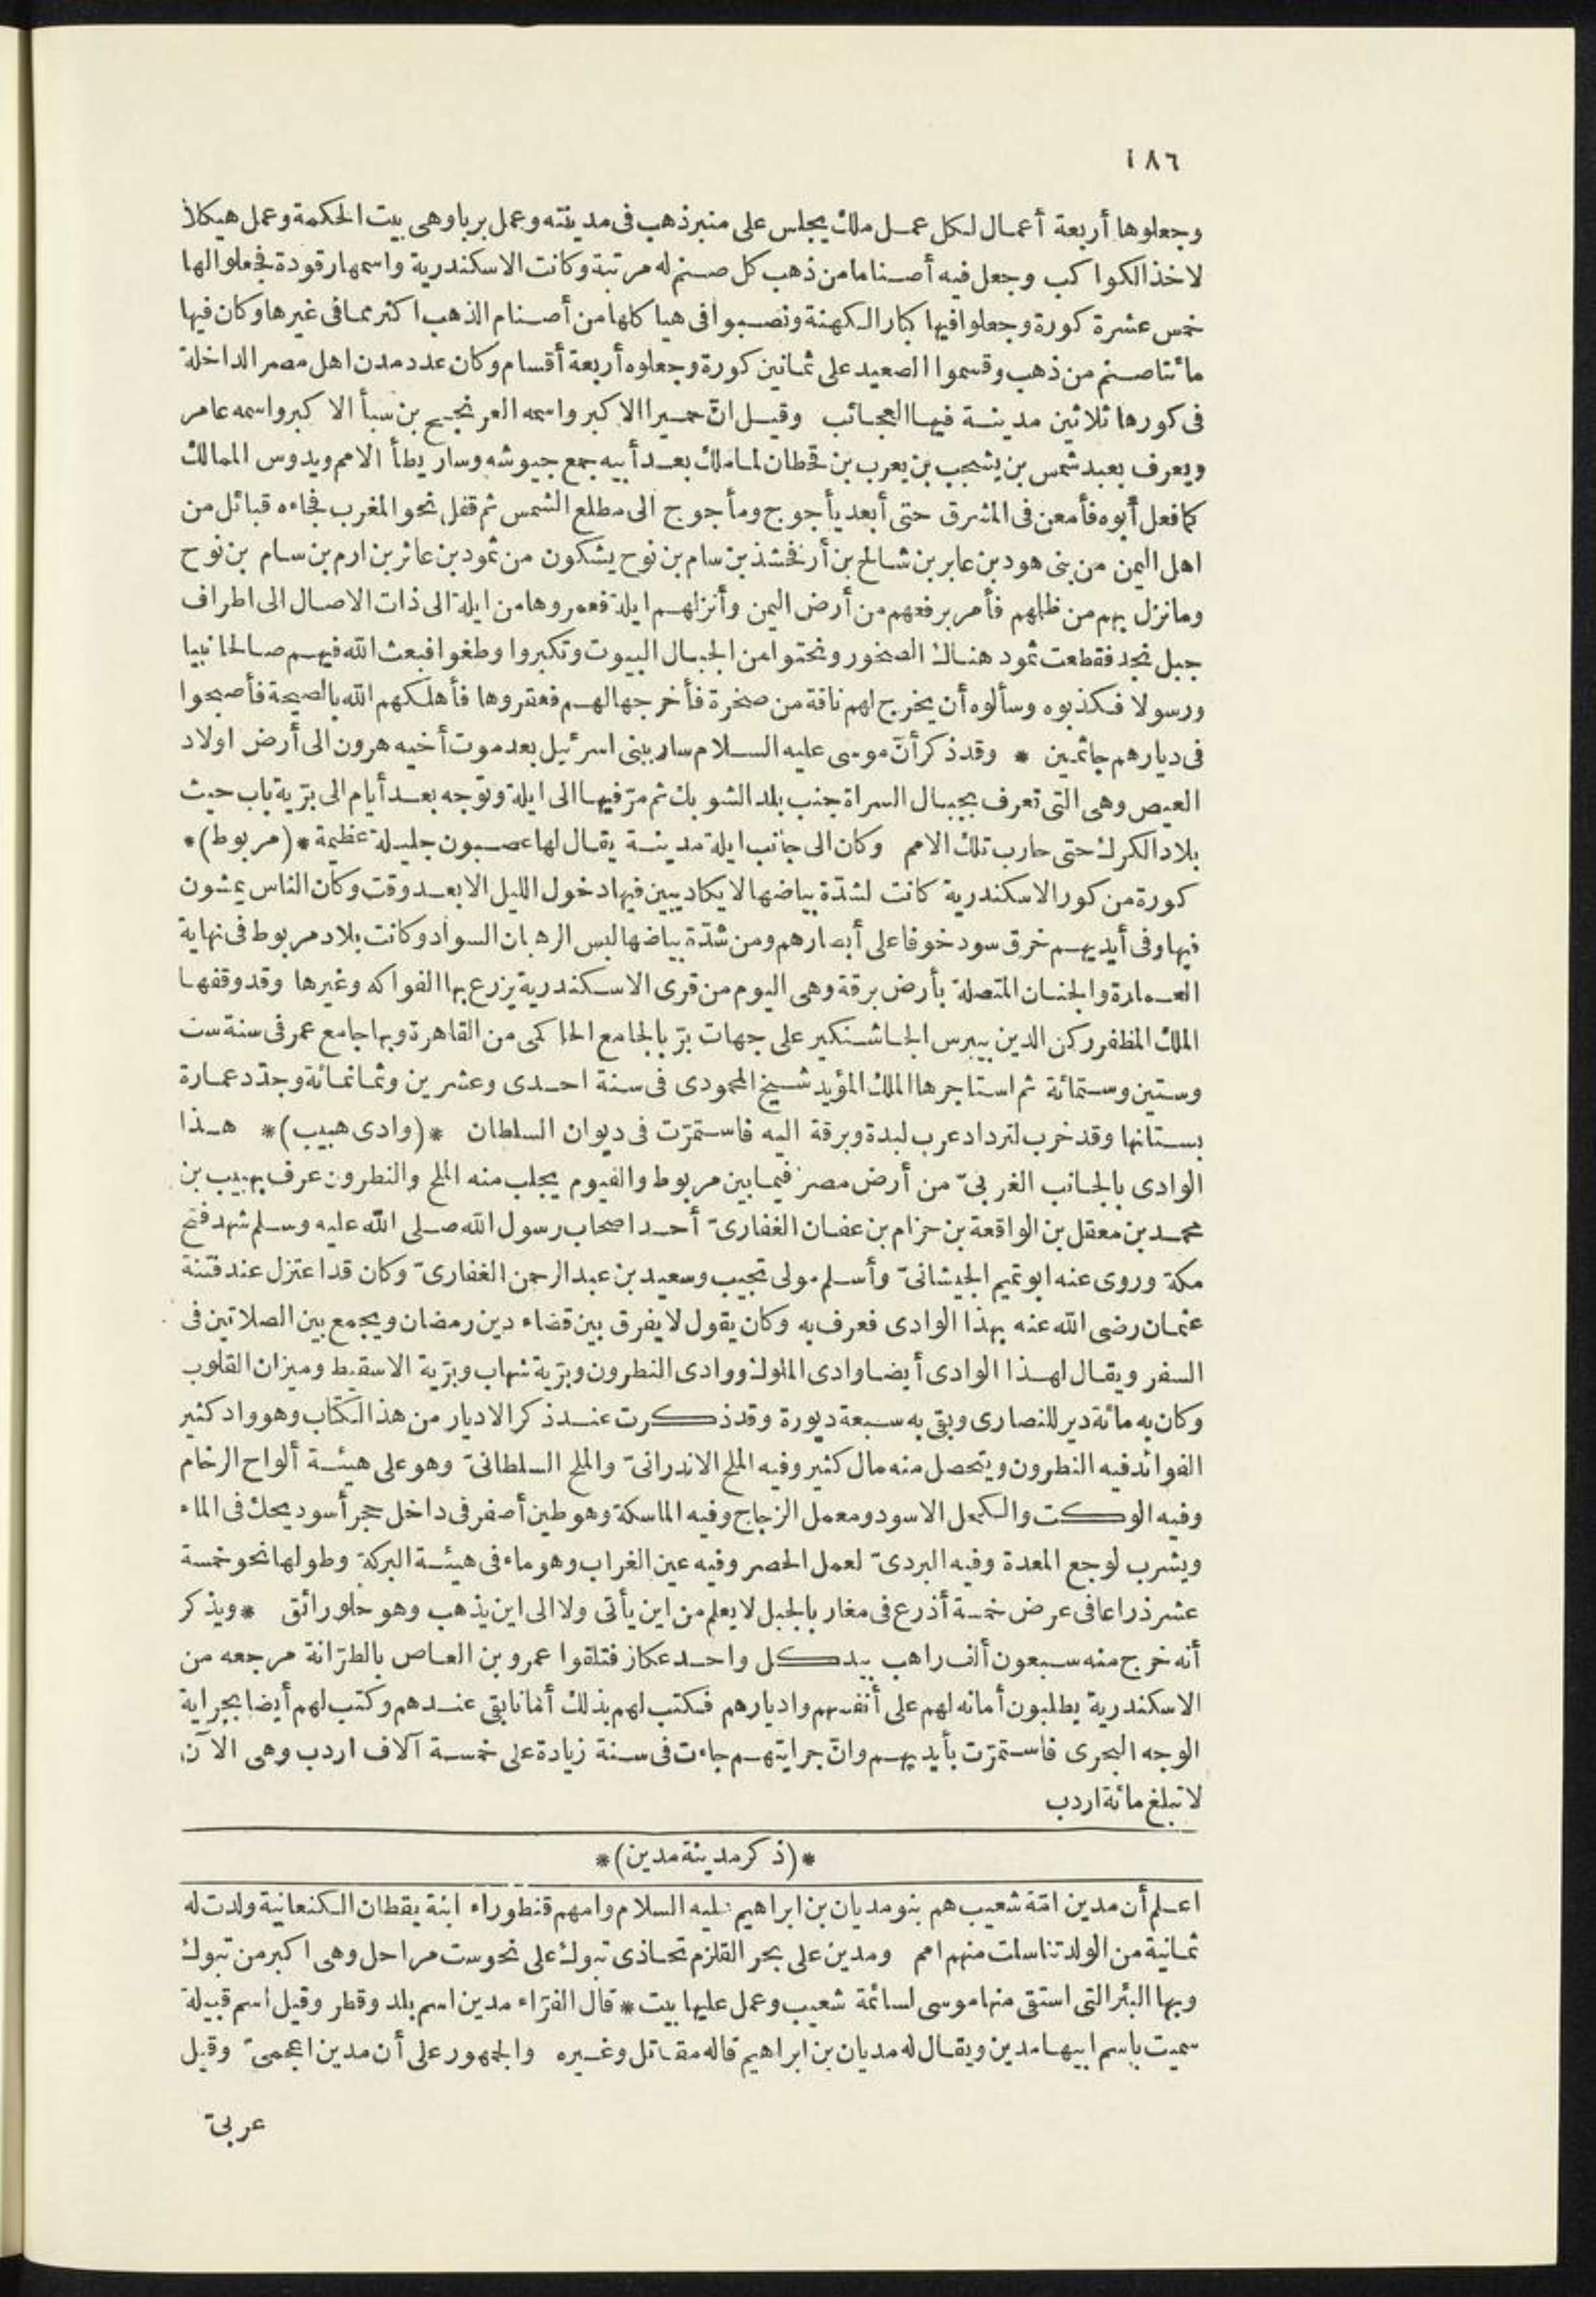 ١٨٦
وجعلوها أربعة أعمال لكل عمل ملك يجلس على منبر ذهب فى مدينته وعمل بربا وهى بيت الحكمة وعمل هيكلا
لاخذ الكواكب وجعل فيه أصناما من ذهب كل صنم له مرتبة وكانت الاسكندرية واسمها رقودة فجعلوا لها
خمس عشرة كورة وجعلوا فيها كبار الكهنة ونصبوا فى هياكلها من أصنام الذهب اكثر مما فى غيرها وكان فيها
مائتا صنم من ذهب وقسموا الصعيد على ثمانين كورة وجعلوه أربعة أقسام وكان عدد مدن اهل مصر الداخلة
فى كورها ثلاثين مدينة فيها العجائب وقيل انّ حميرا الاكبر واسمه العرنجج بن سبأ الاكبر واسمه عامر
ويعرف بعبد شمس بن يشجب بن يعرب بن قحطان لما ملك بعد أبيه جمع جيوشه وسار يطأ الامم ويدوس الممالك
كما فعل أبوه فأمعن فى المشرق حتى أبعد يأجوج ومأجوج الى مطلع الشمس ثم قفل نحو المغرب فجاءه قبائل من
اهل اليمن من بنى هود بن عابر بن شالخ بن أرفخشذ بن سام بن نوح يشكون من ثمود بن عاثر بن ارم بن سام بن نوح
وما نزل بهم من ظلهم فأمر برفعهم من أرض اليمن وأنزلهم ايلة فعمروها من ايلة الى ذات الاصال الى اطراف
جبل نجد فقطعت ثمود هناك الصخور ونحتوا من الجبال البيوت وتكبروا وطغوا فبعث الله فيهم صالحا نبيا
ورسولا فكذبوه وسألوه أن يخرج لهم ناقة من صخرة فأخرجها لهم فعقروها فأهلكهم الله بالصيحة فأصبحوا
فى ديارهم جاثمين * وقد ذكر أنّ موسى عليه السلام سار ببنى اسرئيل بعد موت أخيه هرون الى أرض اولاد
العيص وهى التى تعرف بجبال السراة جنب بلد الشوبك ثم مرّ فيها الى ايلة وتوجه بعد أيام الى برّية باب حيث
بلاد الكرك حتى حارب تلك الامم وكان الى جانب ايلة مدينة يقال لها عصبون جليلة عظيمة *(مربوط)*
كورة من كور الاسكندرية كانت لشدّة بياضها لا يكاد يبين فيها دخول الليل الا بعد وقت وكان الناس يمشون
فيها وفى أيديهم خرق سود خوفا على أبصارهم ومن شدّة بياضها لبس الرهبان السواد وكانت بلاد مربوط فى نهاية
العمارة والجنان المتصلة بأرض برقة وهى اليوم من قرى الاسكندرية يزرع بها الفواكه وغيرها وقد وقفها
الملك المظفر ركن الدين بيبرس الجاشنكير على جهات برّ بالجامع الحاكمى من القاهرة وبها جامع عمر فى سنة ست
وستين وستمائة ثم استاجرها الملك المؤيد شيخ المحمودى فى سنة احدى وعشرين وثمانمائة وجدّد عمارة
بستانها وقد خرب لترداد عرب لبدة وبرقة اليه فاستمرّت فى ديوان السلطان *(وادى هبيب)* هذا
الوادى بالجانب الغربىّ من أرض مصر فيما بين مربوط والفيوم يجلب منه الملح والنطرون عرف بهبيب بن
محمد بن معقل بن الواقعة بن حزام بن عفان الغفارىّ أحد اصحاب رسول الله صلى الله عليه وسلم شهد فتح
مكة وروى عنه ابو تميم الجيشانىّ وأسلم مولى تجيب وسعيد بن عبد الرحمن الغفارىّ وكان قد اعتزل عند فتنة
عثمان رضى الله عنه بهذا الوادى فعرف به وكان يقول لا يفرق بين قضاء دين رمضان ويجمع بين الصلاتين فى
السفر ويقال لهذا الوادى أيضا وادى الملوك ووادى النطرون وبرّية شهاب وبرّية الاسقيط وميزان القلوب
وكان به مائة دير للنصارى وبقى به سبعة ديورة وقد ذكرت عند ذكر الاديار من هذا الكتاب وهو واد كثير
الفوائد فيه النطرون ويتحصل منه مال كثير وفيه الملح الاندرانىّ والملح السلطانىّ وهو على هيئة ألواح الرخام
وفيه الوكت والكحل الاسود ومعمل الزجاج وفيه الماسكة وهو طين أصفر فى داخل حجر أسود يحك فى الماء
ويشرب لوجع المعدة وفيه البردىّ لعمل الحصر وفيه عين الغراب وهو ماء فى هيئة البركة وطولها نحو خمسة
عشر ذراعا فى عرض خمسة أذرع فى مغار بالجبل لا يعلم من اين يأتى ولا الى اين يذهب وهو حلو رائق * ويذكر
أنه خرج منه سبعون ألف راهب بيد كل واحد عكاز فتلقوا عمرو بن العاص بالطرّانة مرجعه من
الاسكندرية يطلبون أمانه لهم على أنفسهم واديارهم فكتب لهم بذلك أمانا بقى عندهم وكتب لهم أيضا بجراية
الوجه البحرى فاستمرّت بأيديهم وانّ جرايتهم جاءت فى سنة زيادة على خمسة آلاف اردب وهى الآن
لا تبلغ مائة اردب
*(ذكر مدينة مدين)*
اعلم أن مدين امّة شعيب هم بنو مديان بن ابراهيم عليه السلام وامهم قنطوراء ابنة يقطان الكنعانية ولدت له
ثمانية من الولد تناسلت منهم امم ومدين على بحر القلزم تحاذى تبوك على نحو ست مراحل وهى اكبر من تبوك
وبها البئر التى استقى منها موسى لسائمة شعيب وعمل عليها بيت * قال الفرّاء مدين اسم بلد وقطر وقيل اسم قبيلة
سميت باسم ابيها مدين ويقال له مديان بن ابراهيم قاله مقاتل وغيره والجمهور على أن مدين اعجمىّ وقيل
عربىّ